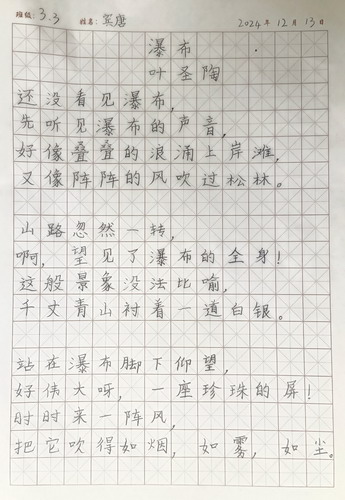 班级：3.3 姓名：宾唐 2024年12月13日
瀑布
叶圣陶
还没看见瀑布，
先听见瀑布的声音，
好像叠叠的浪涌上岸滩，
又像阵阵的风吹过松林。
山路忽然一转，
啊，望见了瀑布的全身！
这般景象没法比喻，
千丈青山衬着一道白银。
站在瀑布脚下仰望，
好伟大呀，一座珍珠的屏！
时时来一阵风，
把它吹得如烟，如雾，如尘。